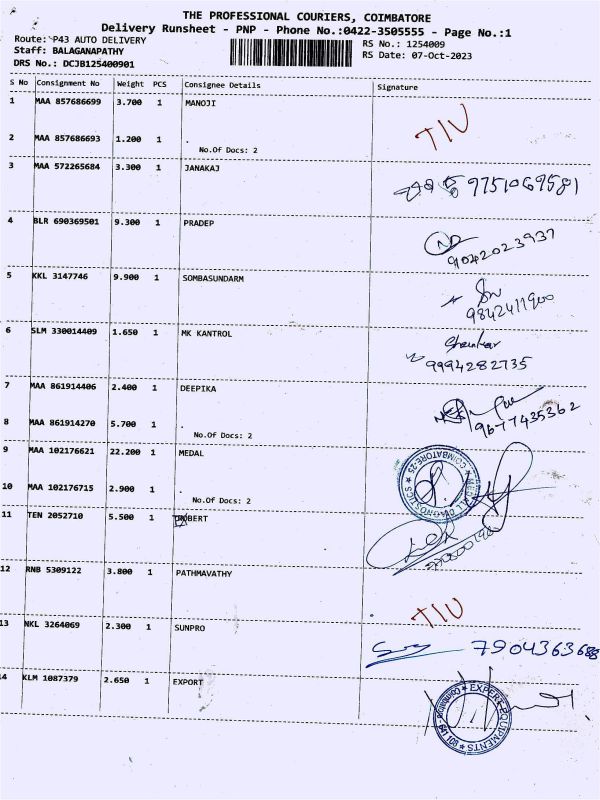 THE PROFESSIONAL COURIERS, COIMBATORE
Delivery Runsheet - PNP - Phone No.:0422-3505555 - Page No.:1
Route: P43 AUTO DELIVERY
RS No.: 1254009
Staff: BALAGANAPATHY
RS Date: 07-Oct-2023
DRS No.: DCJB125400901
S No Consignment No Weight PCS Consignee Details Signature
1 MAA 857686699 3.700 1 MANOJI
TIU
2 MAA 857686693 1.200 1 .
No.Of Docs: 2
3 MAA 572265684 3.300 1 JANAKAJ
9751069581
4 BLR 690369501 9.300 1 PRADEP
9042023937
5 KKL 3147746 9.900 1 SOMBASUNDARM
9842411900
6 SLM 330014409 1.650 1 MK KANTROL
Shankar
9994282735
7 MAA 861914406 2.400 1 DEEPIKA
9677435362
8 MAA 861914270 5.700 1 .
No.Of Docs: 2
9 MAA 102176621 22.200 1 MEDAL
MEDALL DIAGNOSTICS ★ COIMBATORE-25 ★
10 MAA 102176715 2.900 1 .
No.Of Docs: 2
11 TEN 2052710 5.500 1 ROBERT
12 RNB 5309122 3.800 1 PATHMAVATHY
TIU
13 NKL 3264069 2.300 1 SUNPRO
7904363688
14 KLM 1087379 2.650 1 EXPORT
★ EXPERT EQUIPMENTS ★ 641 108